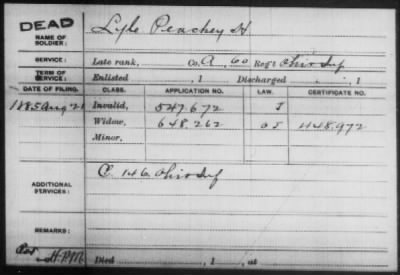 DEAD
NAME OF SOLDIER: Lyle Peachey H
SERVICE: Late rank, Co. A, 60 Reg't Ohio Inf
TERM OF SERVICE: Enlisted , 1 Discharged , 1
DATE OF FILING. CLASS. APPLICATION NO. LAW. CERTIFICATE NO.
1885 Aug 21 Invalid, 547.672 J
Widow, 648.262 448.972
Minor,
ADDITIONAL SERVICES: C. 146 Ohio Inf
REMARKS:
Died , 1 , at